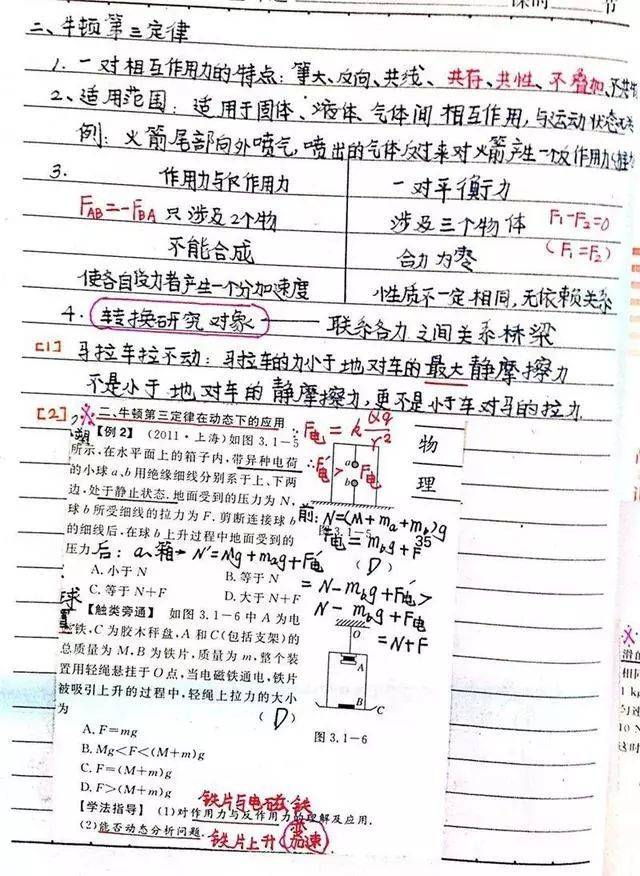 课时 节
二、牛顿第三定律
1. 一对相互作用力的特点：等大、反向、共线、共存、共性、不叠加、不共
2、适用范围：适用于固体、液体、气体间相互作用，与运动状态无关
例：火箭尾部向外喷气，喷出的气体反过来对火箭产生一个反作用力（推力
3. 作用力与反作用力 一对平衡力
FAB=-FBA 只涉及2个物 涉及三个物体 F₁-F₂=0
不能合成 合力为零 （F₁=F₂）
使各自受力者产生一个分加速度 性质不一定相同，无依赖关系
4. 转换研究对象 —— 联系各力之间关系桥梁
[1] 马拉车拉不动：马拉车的力小于地对车的最大静摩擦力
不是小于地对车的静摩擦力，更不是小于车对马的拉力
[2] ※ 二、牛顿第三定律在动态下的应用
【例2】（2011·上海）如图3.1-5
所示，在水平面上的箱子内，带异种电荷
的小球a、b用绝缘细线分别系于上、下两
边，处于静止状态.地面受到的压力为N，
球b所受细线的拉力为F.剪断连接球b
的细线后，在球b上升过程中地面受到的
压力
（D）
A. 小于N B. 等于N
C. 等于N+F D. 大于N+F
∵F电=k Qq/r²
∴F电′>F电
a
b
物
理
35
图3.1-5
前：N=(M+ma+mb)g
F电=mbg+F
后：a、箱→N′=Mg+mag+F电′
=N-mbg+F电′>
N-mbg+F电
=N+F
【触类旁通】 如图3.1-6中A为电
磁铁，C为胶木秤盘，A和C(包括支架)的
总质量为M，B为铁片，质量为m，整个装
置用轻绳悬挂于O点，当电磁铁通电，铁片
被吸引上升的过程中，轻绳上拉力的大小
为 （D）
A. F=mg
B. Mg<F<(M+m)g
C. F=(M+m)g
D. F>(M+m)g
O
A
B
C
图3.1-6
铁片与电磁铁
【学法指导】 (1)对作用力与反作用力的理解及应用.
(2)能否动态分析问题.
铁片上升（变加速）
相同
10 N